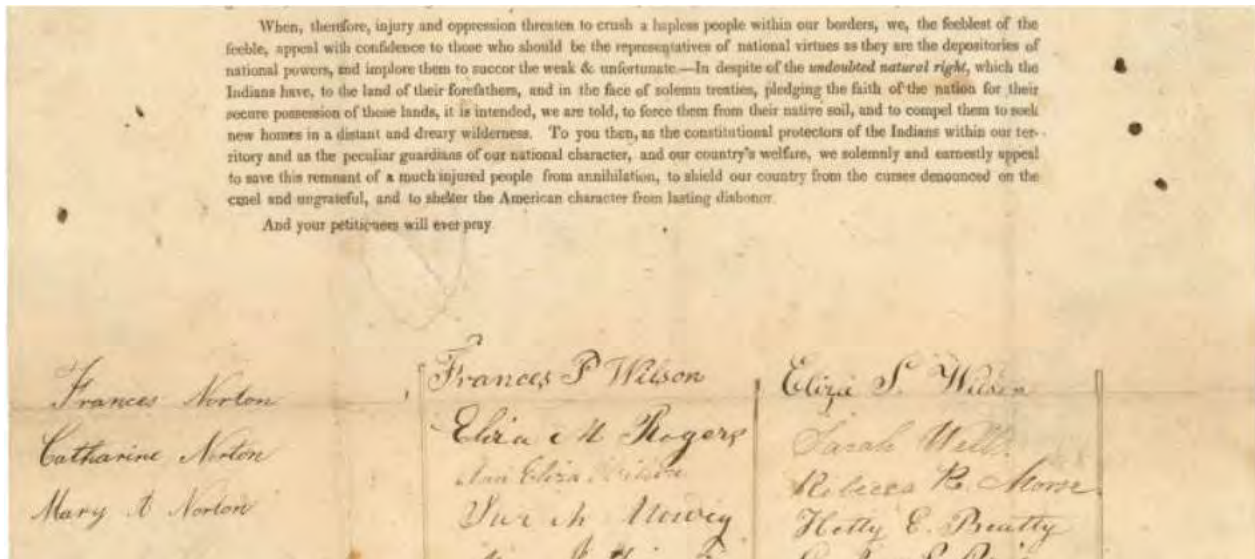 When, therefore, injury and oppression threaten to crush a hapless people within our borders, we, the feeblest of the
feeble, appeal with confidence to those who should be the representatives of national virtues as they are the depositories of
national powers, and implore them to succor the weak & unfortunate.—In despite of the undoubted natural right, which the
Indians have, to the land of their forefathers, and in the face of solemn treaties, pledging the faith of the nation for their
secure possession of those lands, it is intended, we are told, to force them from their native soil, and to compel them to seek
new homes in a distant and dreary wilderness. To you then, as the constitutional protectors of the Indians within our ter-
ritory and as the peculiar guardians of our national character, and our country's welfare, we solemnly and earnestly appeal
to save this remnant of a much injured people from annihilation, to shield our country from the curses denounced on the
cruel and ungrateful, and to shelter the American character from lasting dishonor.
And your petitioners will ever pray
Frances Norton
Catharine Norton
Mary A Norton
Frances P Wilson
Eliza M Rogers
Ann Eliza Wilson
Eliza S. Wilson
Sarah Wells
Rebecca R. Morse
Hetty E. Beatty